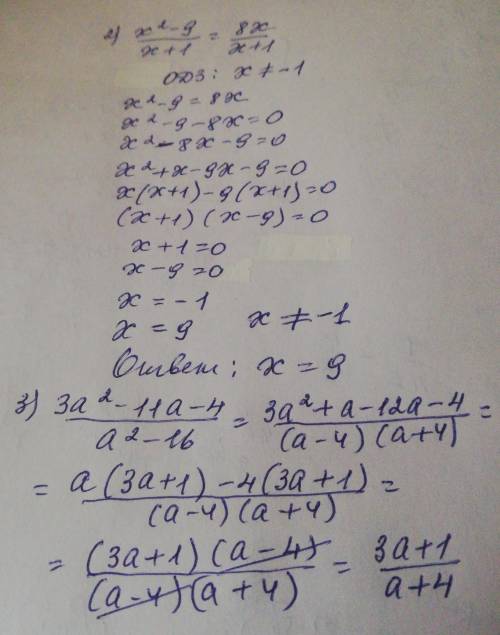 2) (x²-9)/(x+1) = 8x/(x+1)
ОДЗ: x ≠ -1
x²-9 = 8x
x²-9-8x=0
x²-8x-9=0
x²+x-9x-9=0
x(x+1)-9(x+1)=0
(x+1)(x-9)=0
x+1=0
x-9=0
x = -1
x = 9 x ≠ -1
Ответ: x = 9
3) (3a²-11a-4)/(a²-16) = (3a²+a-12a-4)/((a-4)(a+4)) =
= (a(3a+1)-4(3a+1))/((a-4)(a+4)) =
= ((3a+1)(a-4))/((a-4)(a+4)) = (3a+1)/(a+4)